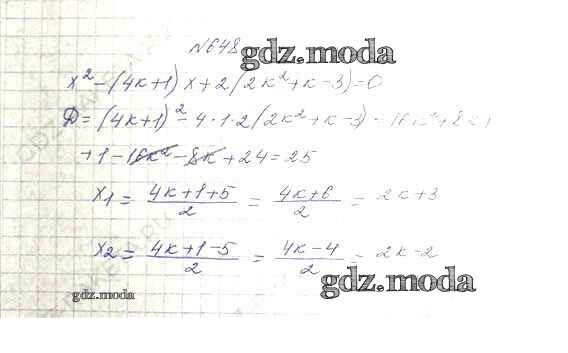 №648
gdz.moda
x² - (4к+1) x + 2 (2к² + к - 3) = 0
Д = (4к+1)² - 4·1·2 (2к² + к - 3) = 16к² + 8к +
+ 1 - 16к² - 8к + 24 = 25
x1 = (4к+1+5)/2 = (4к+6)/2 = 2к+3
x2 = (4к+1-5)/2 = (4к-4)/2 = 2к-2
gdz.moda
gdz.moda